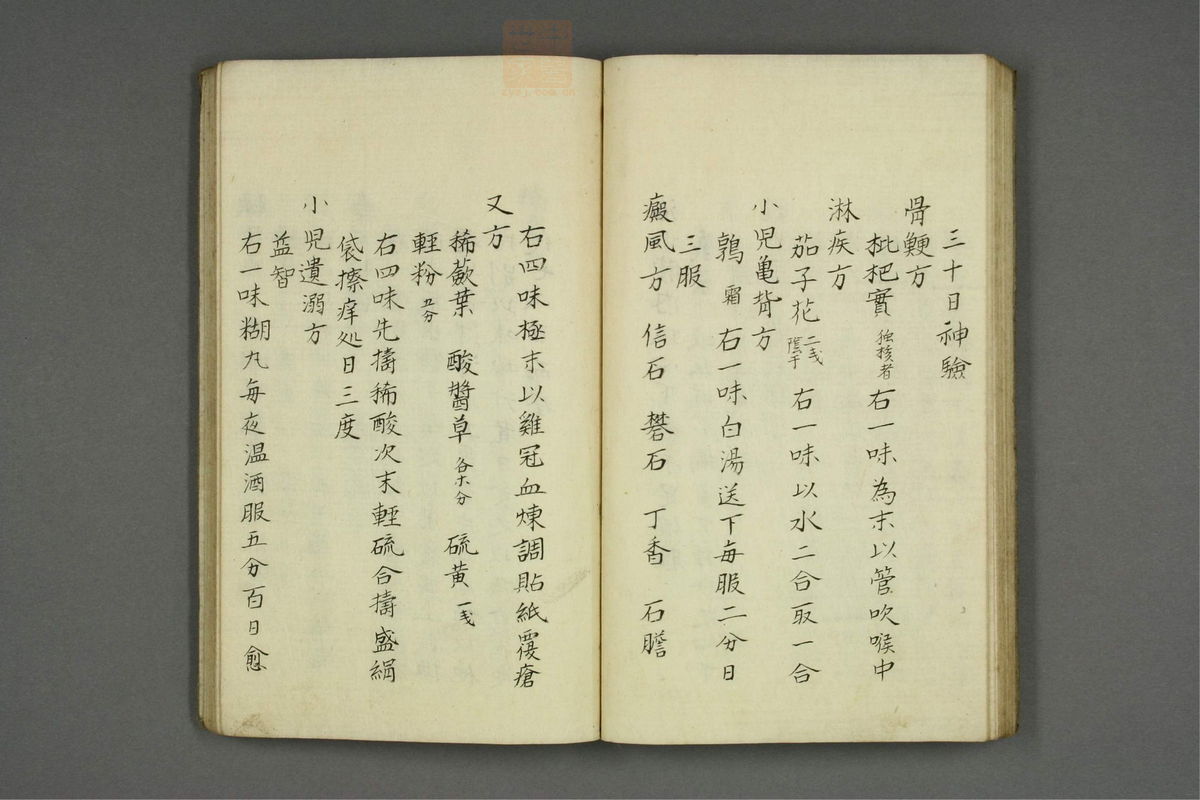 三十日神驗
骨鯁方
枇杷實 独核者 右一味為末以管吹喉中
淋疾方
茄子花 二戋陰干 右一味以水二合取一合
小児亀背方
鶉 霜 右一味白湯送下每服二分日
三服
癜風方 信石 礬石 丁香 石膽
右四味極末以雞冠血煉調貼紙覆瘡
又方
豨薟葉 酸醬草 各六分 硫黄 一戋
輕粉 五分
右四味先擣豨酸次末輕硫合擣盛絹
袋擦痒処日三度
小児遺溺方
益智
右一味糊丸每夜温酒服五分百日愈
zysj.com.cn